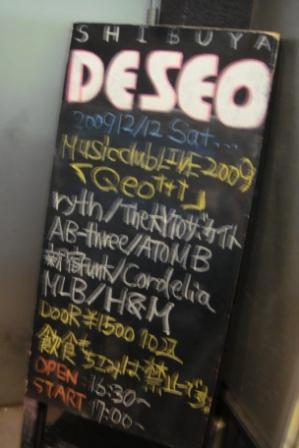 SHIBUYA
DESEO
2009 12/12 Sat...
Music club LIVE 2009
「Qeo†††」
ryth/The
AB-three/ATOMB
新宿Funk/Cordelia
MLB/H&M
DOOR ¥1500
飲食 禁止です
OPEN 16:30~
START 17:00~